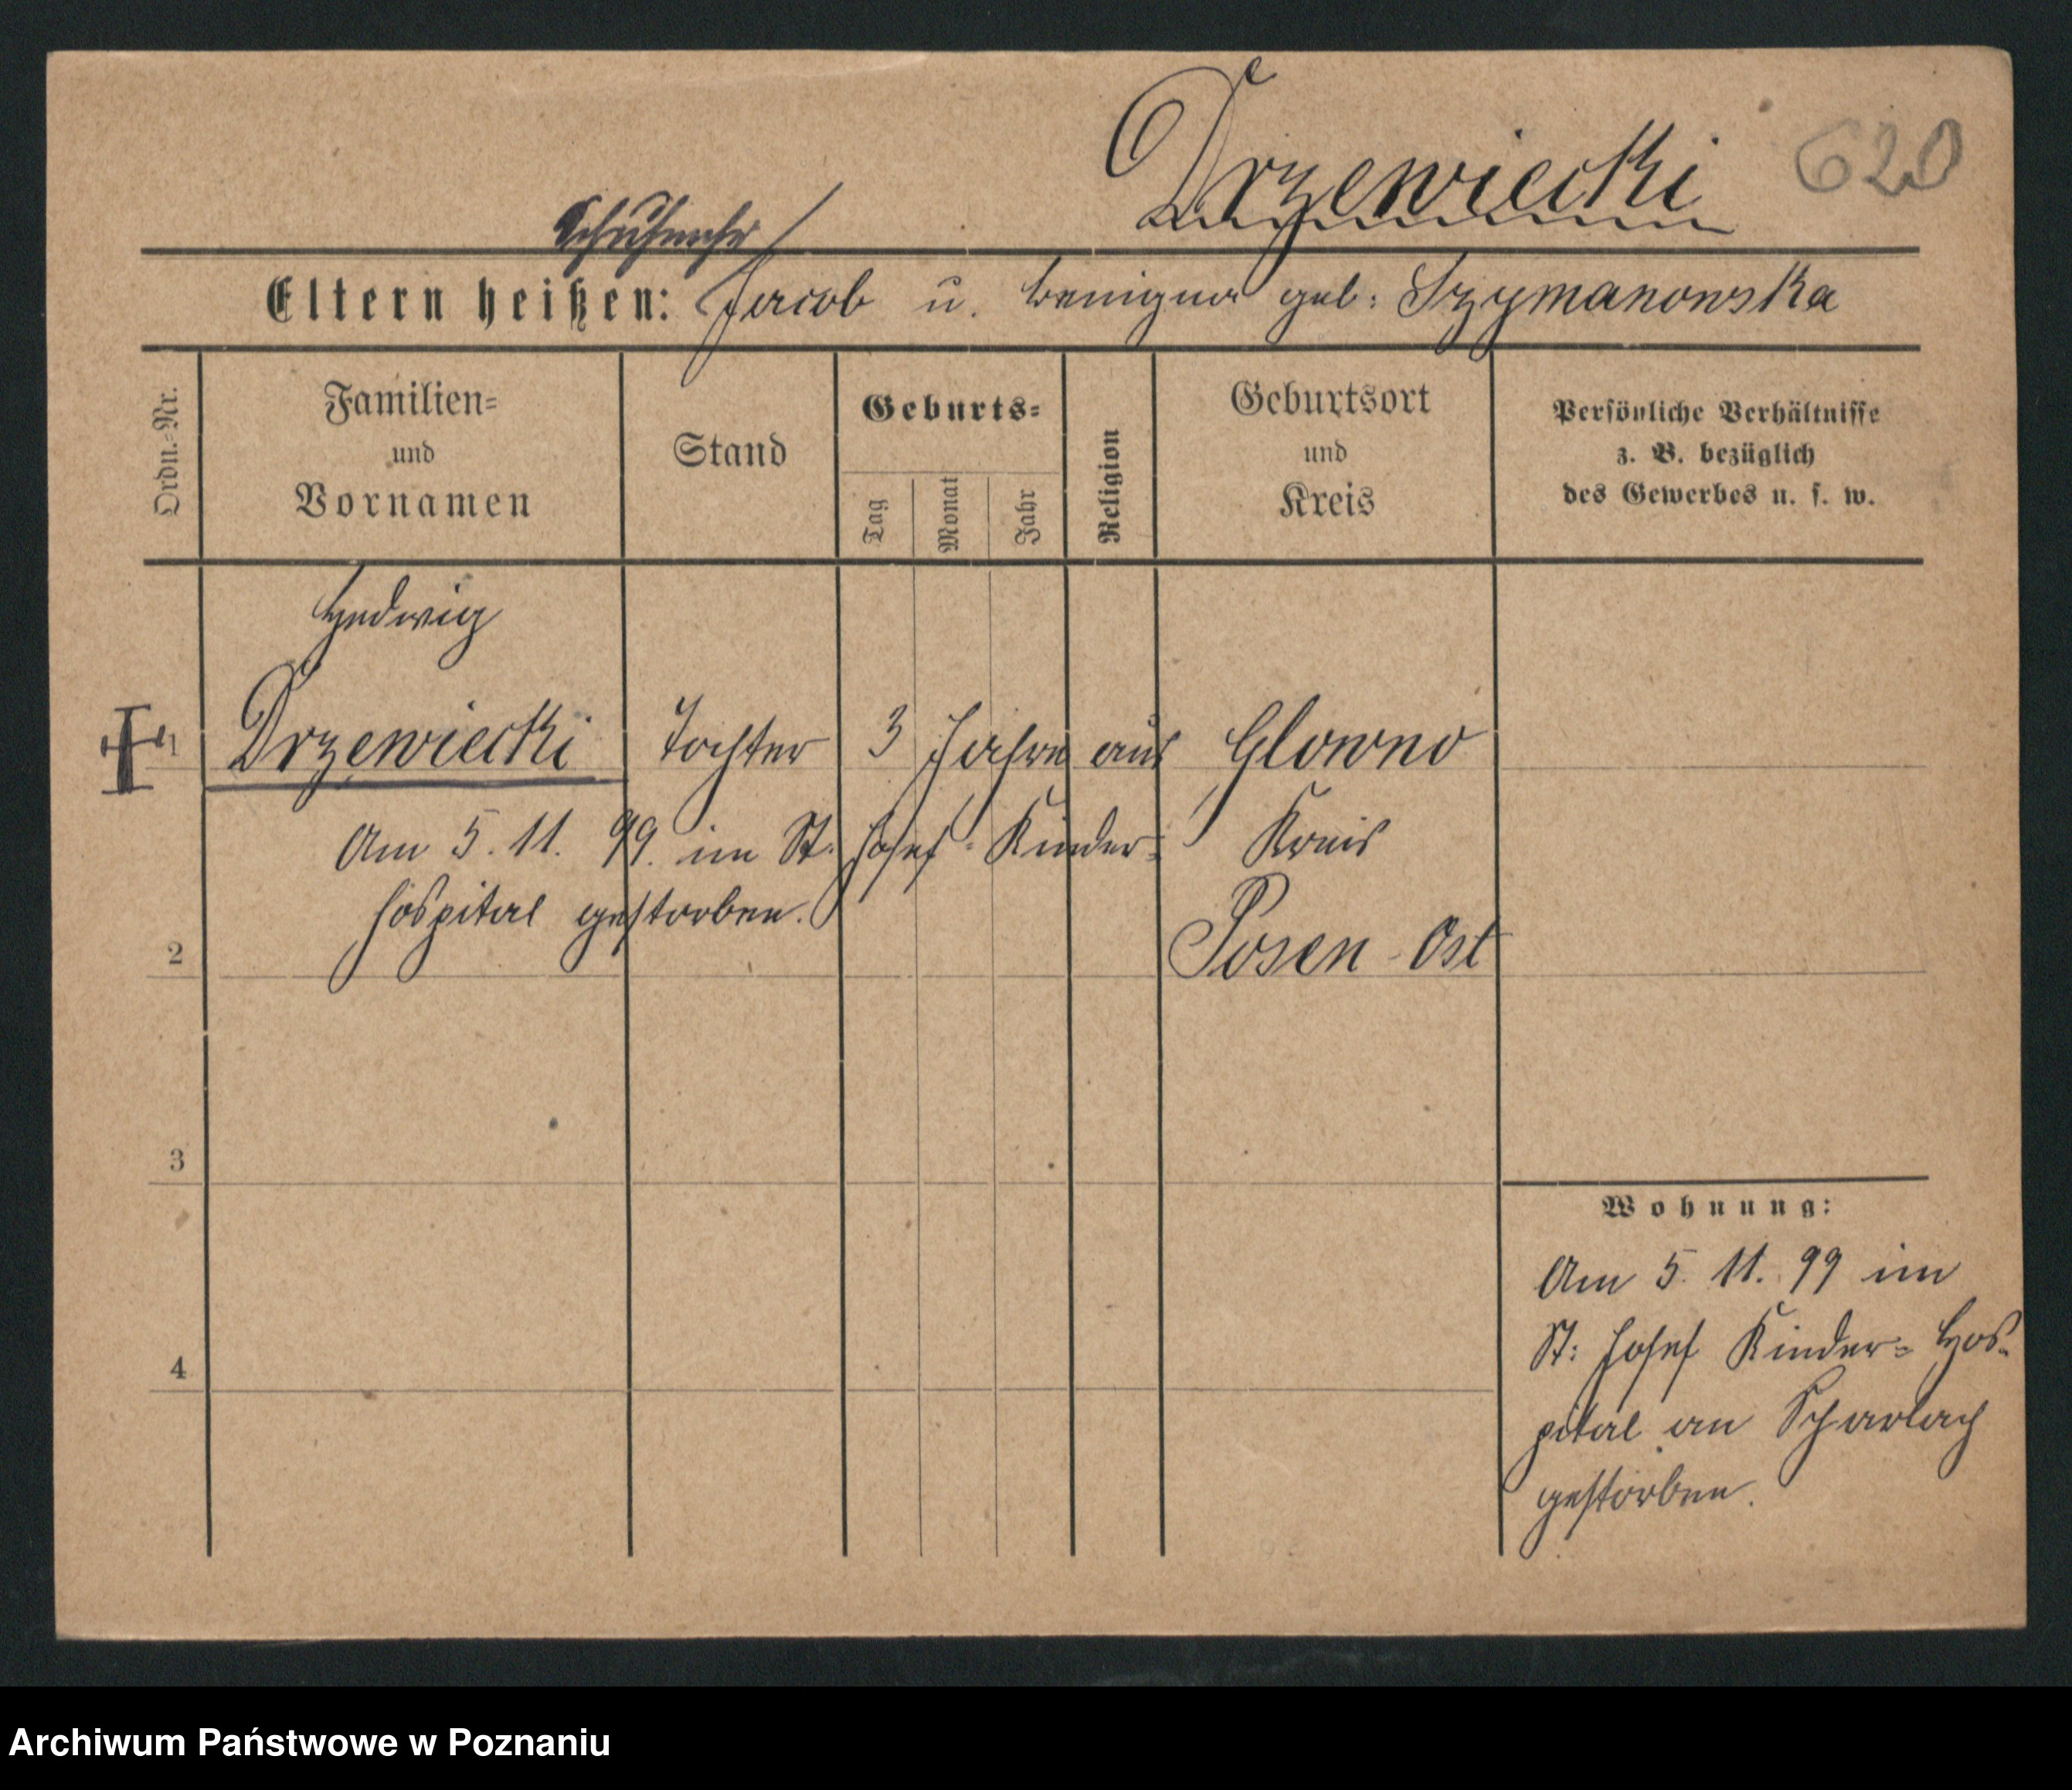 Drzewiecki 620
Eltern heißen: Jacob u. Benigna geb: Szymanowska
Ordn.=Nr.
Familien=
und
Vornamen
Stand
Geburts=
Tag
Monat
Jahr
Religion
Geburtsort
und
Kreis
Persönliche Verhältnisse
z. B. bezüglich
des Gewerbes u. s. w.
Hedwig
1 Drzewiecki Tochter 3 Jahre aus Glowno
Am 5. 11. 99. im St. Josef-Kinder= Kreis
hospital gestorben.
2 Posen-Ost
3
4
Wohnung:
Am 5. 11. 99 im
St: Josef Kinder=Hos=
pital an Scharlach
gestorben.
Archiwum Państwowe w Poznaniu